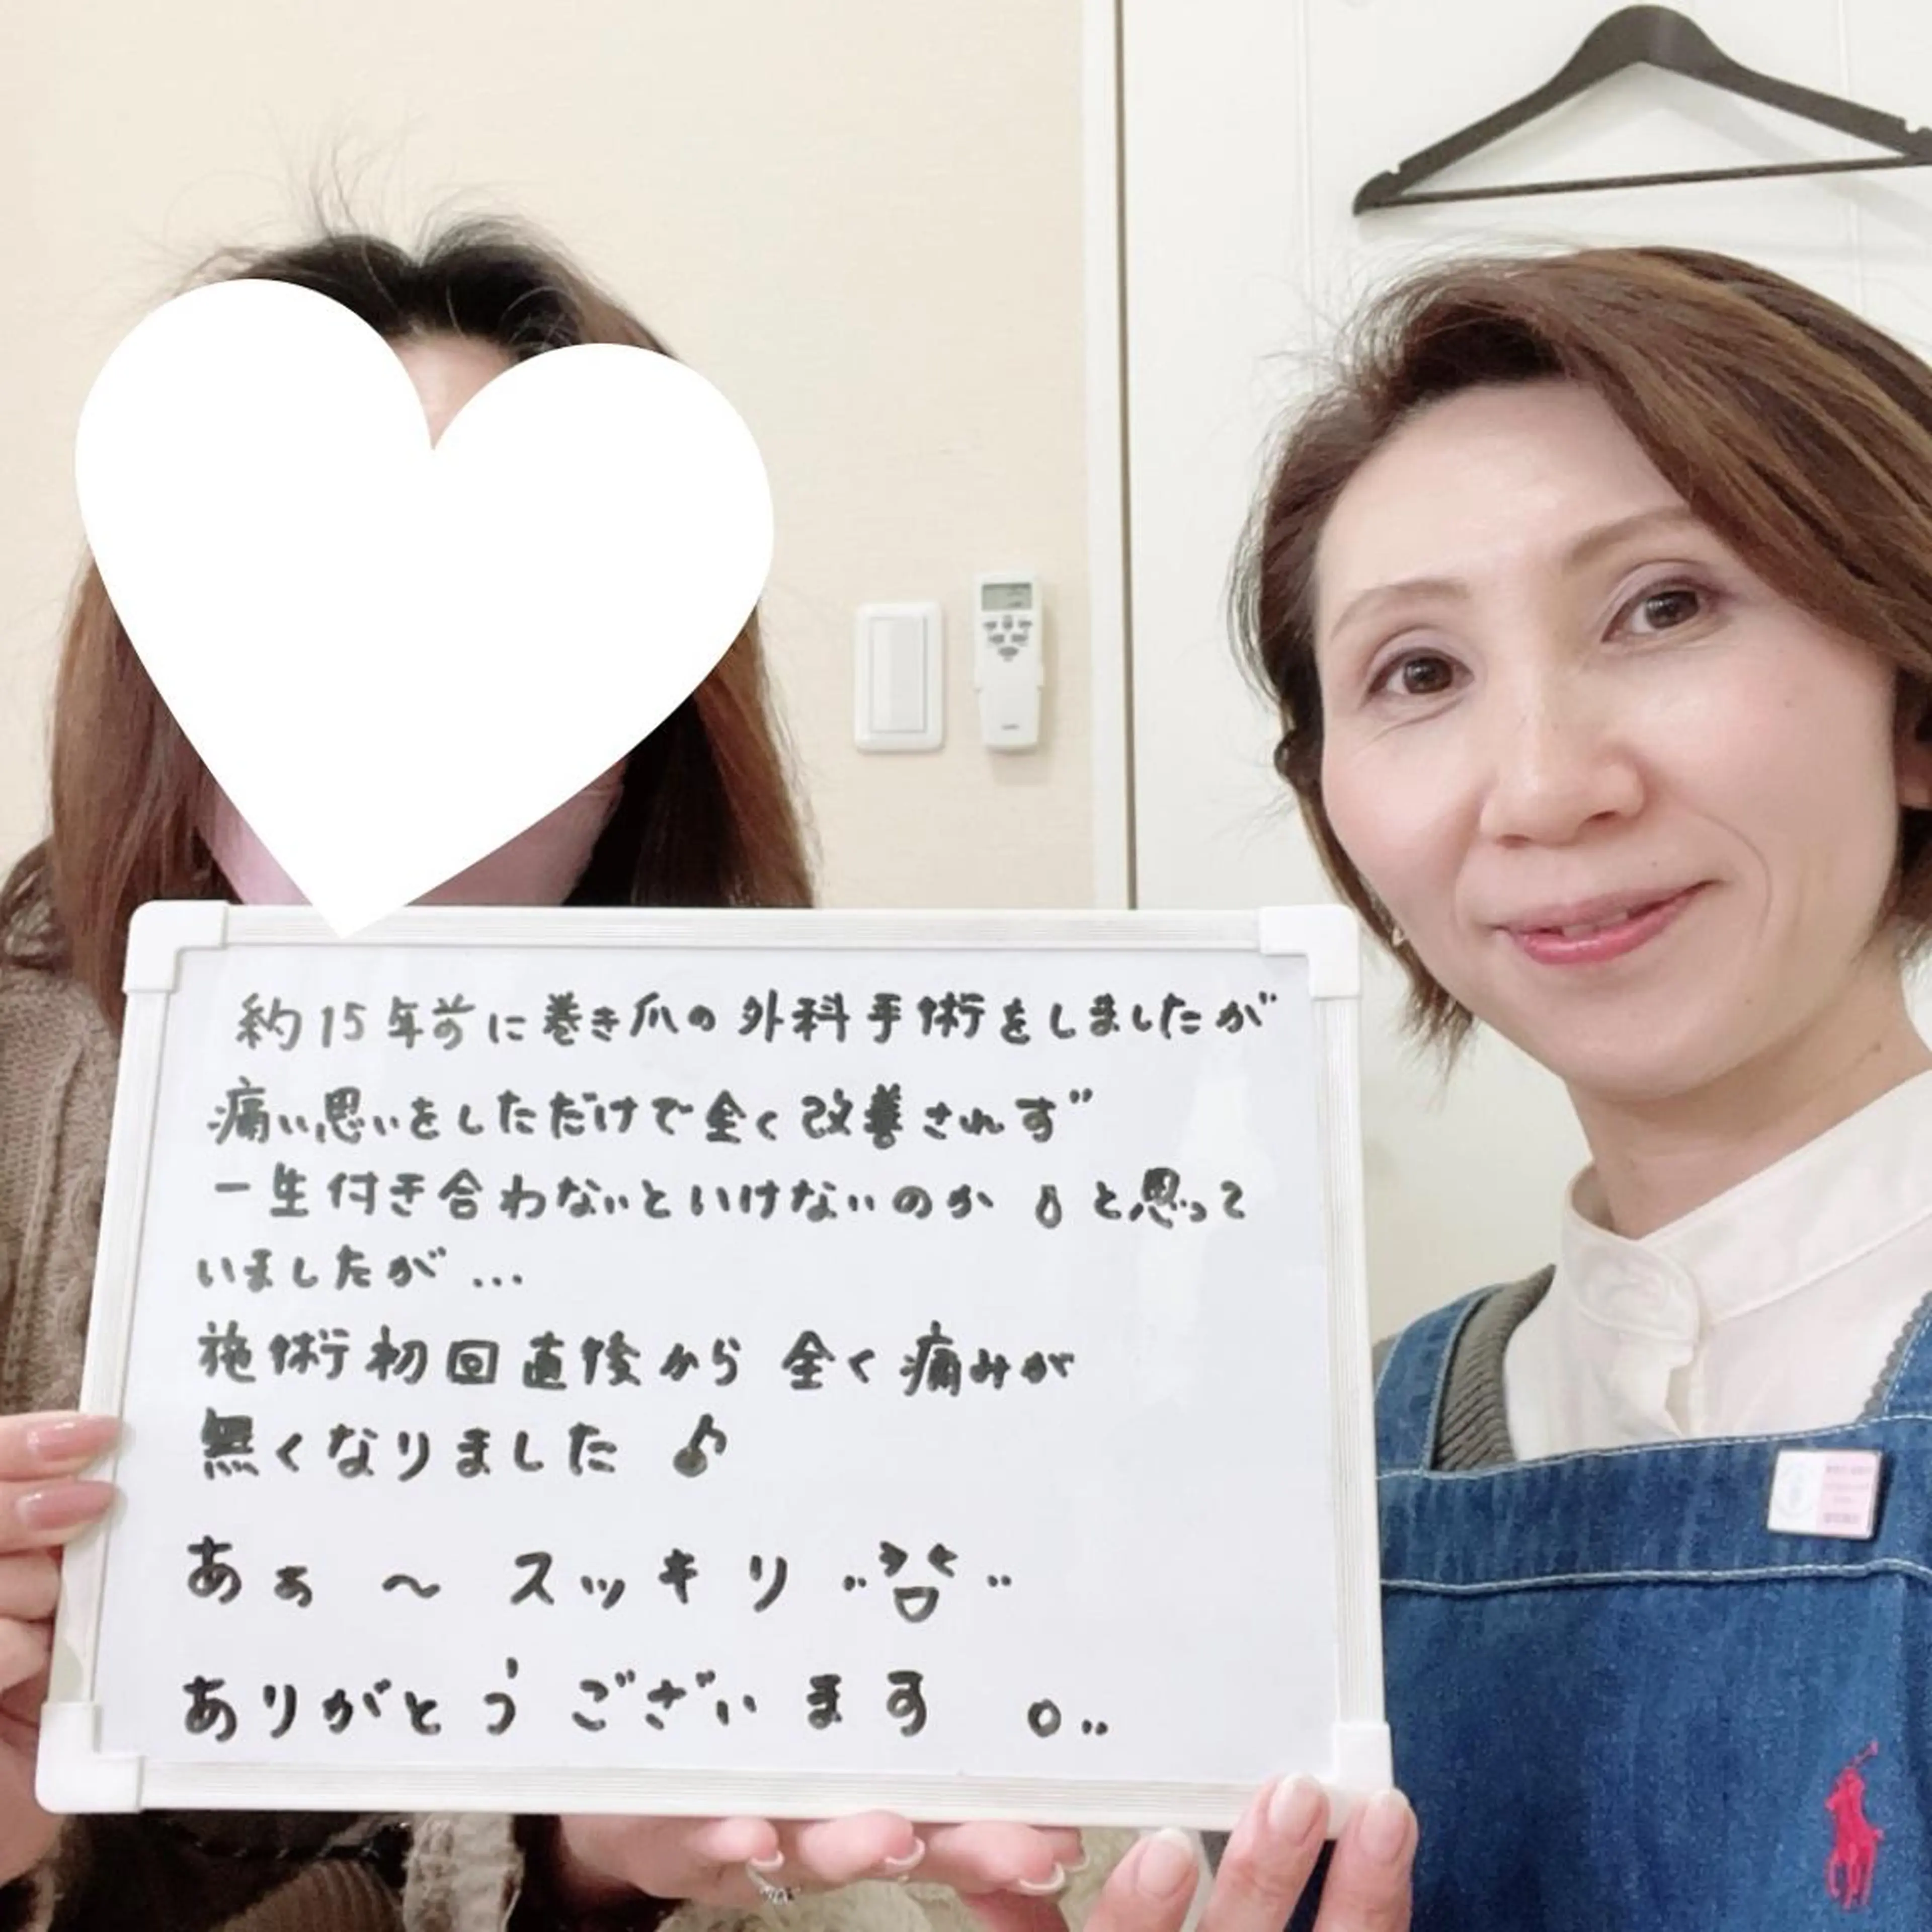 約15年前に巻き爪の外科手術をしましたが
痛い思いをしただけで全く改善されず
一生付き合わないといけないのか と思って
いましたが...
施術初回直後から 全く痛みが
無くなりました ♪
あぁ ～ スッキリ
ありがとうございます 。